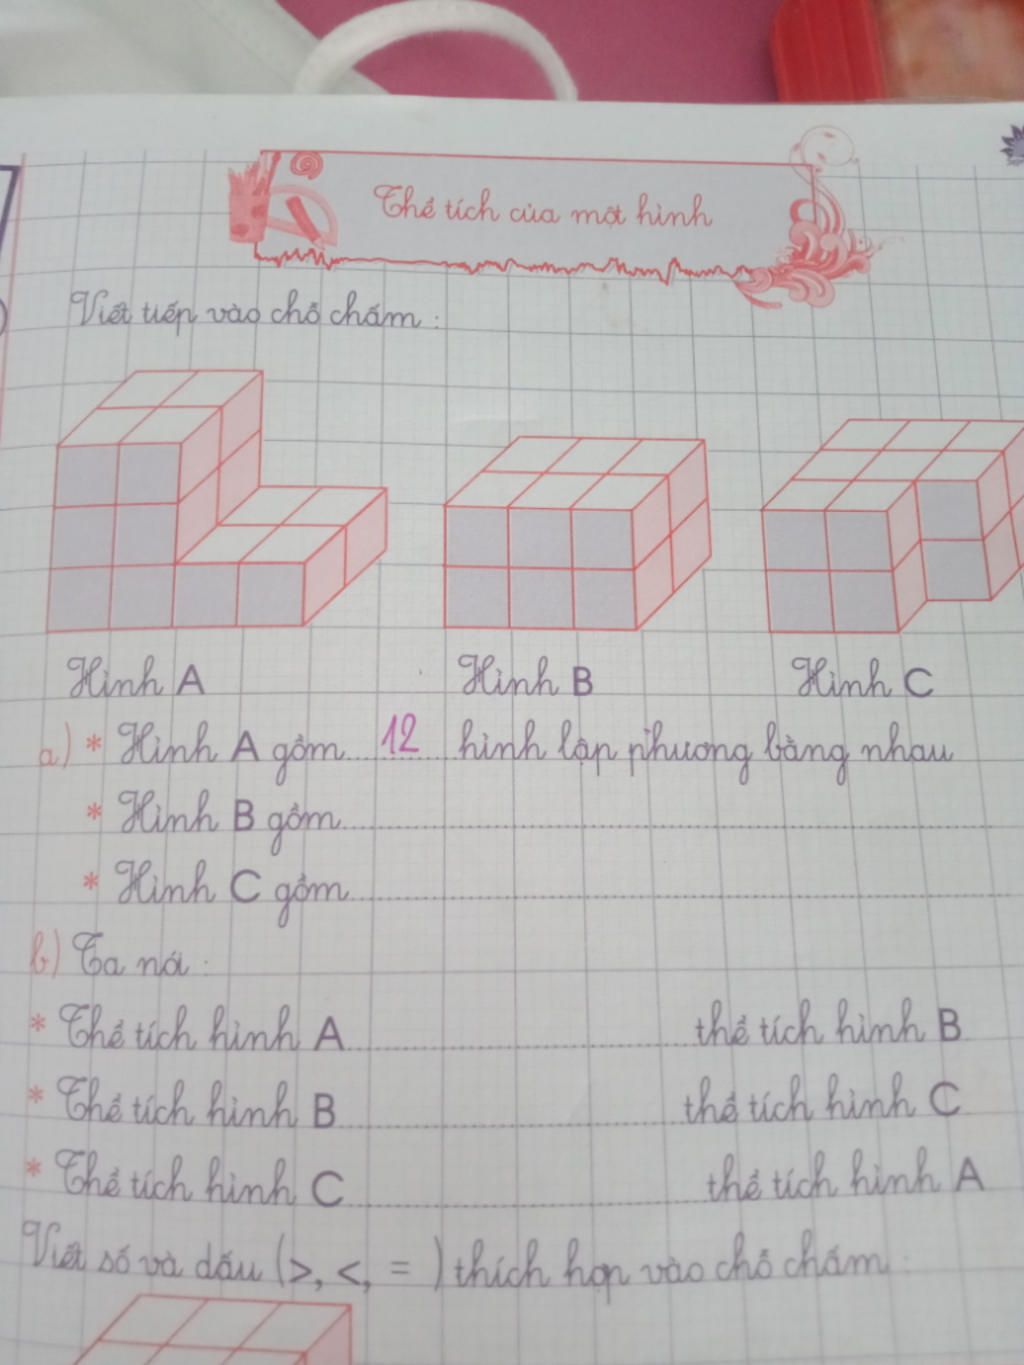 Thể tích của một hình
Viết tiếp vào chỗ chấm :
Hình A
Hình B
Hình C
a) * Hình A gồm 12 hình lập phương bằng nhau
* Hình B gồm
* Hình C gồm
b) Ta nói :
* Thể tích hình A thể tích hình B
* Thể tích hình B thể tích hình C
* Thể tích hình C thể tích hình A
Viết số và dấu (>, <, = ) thích hợp vào chỗ chấm :